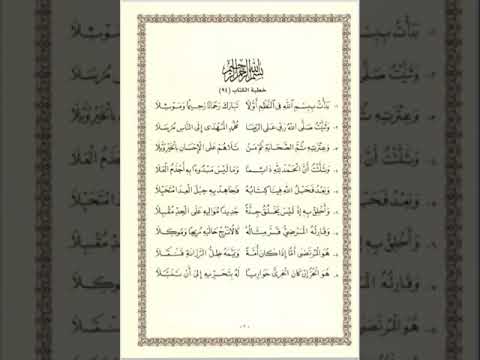 بِسْمِ اللهِ الرَّحْمٰنِ الرَّحِيمِ
خطبة الكتاب (٩٤)
بَدَأْتُ بِبِسْمِ اللَّهِ فِي النَّظْمِ أَوَّلَا تَبَارَكَ رَحْمَانًا رَحِيمًا وَمَوْئِلَا
وَثَنَّيْتُ صَلَّى اللَّهُ رَبِّي عَلَى الرِّضَا مُحَمَّدٍ الْمُهْدَى إِلَى النَّاسِ مُرْسَلَا
وَعِتْرَتِهِ ثُمَّ الصَّحَابَةِ ثُمَّ مَنْ تَلَاهُمْ عَلَى الْإِحْسَانِ بِالْخَيْرِ وُبَّلَا
وَثَلَّثْتُ أَنَّ الْحَمْدَ لِلَّهِ دَائِمًا وَمَا لَيْسَ مَبْدُوءًا بِهِ أَجْذَمُ الْعَلَا
وَبَعْدُ فَحَبْلُ اللَّهِ فِينَا كِتَابُهُ فَجَاهِدْ بِهِ حِبْلَ الْعِدَا مُتَحَبِّلَا
وَأَخْلِقْ بِهِ إِذْ لَيْسَ يَخْلُقُ جِدَّةً جَدِيدًا مُوَالِيهِ عَلَى الْجِدِّ مُقْبِلَا
وَقَارِئُهُ الْمَرْضِيُّ قَرَّ مِثَالُهُ كَالْأُتْرُجِّ حَالَيْهِ مُرِيحًا وَمُوكِلَا
هُوَ الْمُرْتَضَى أَمًّا إِذَا كَانَ أُمَّةً وَيَمَّمَهُ ظِلُّ الرَّزَانَةِ قَنْقَلَا
هُوَ الْحُرُّ إِنْ كَانَ الْحَرِيَّ حَوَارِيًا لَهُ بِتَحَرِّيهِ إِلَى أَنْ تَنَبَّلَا